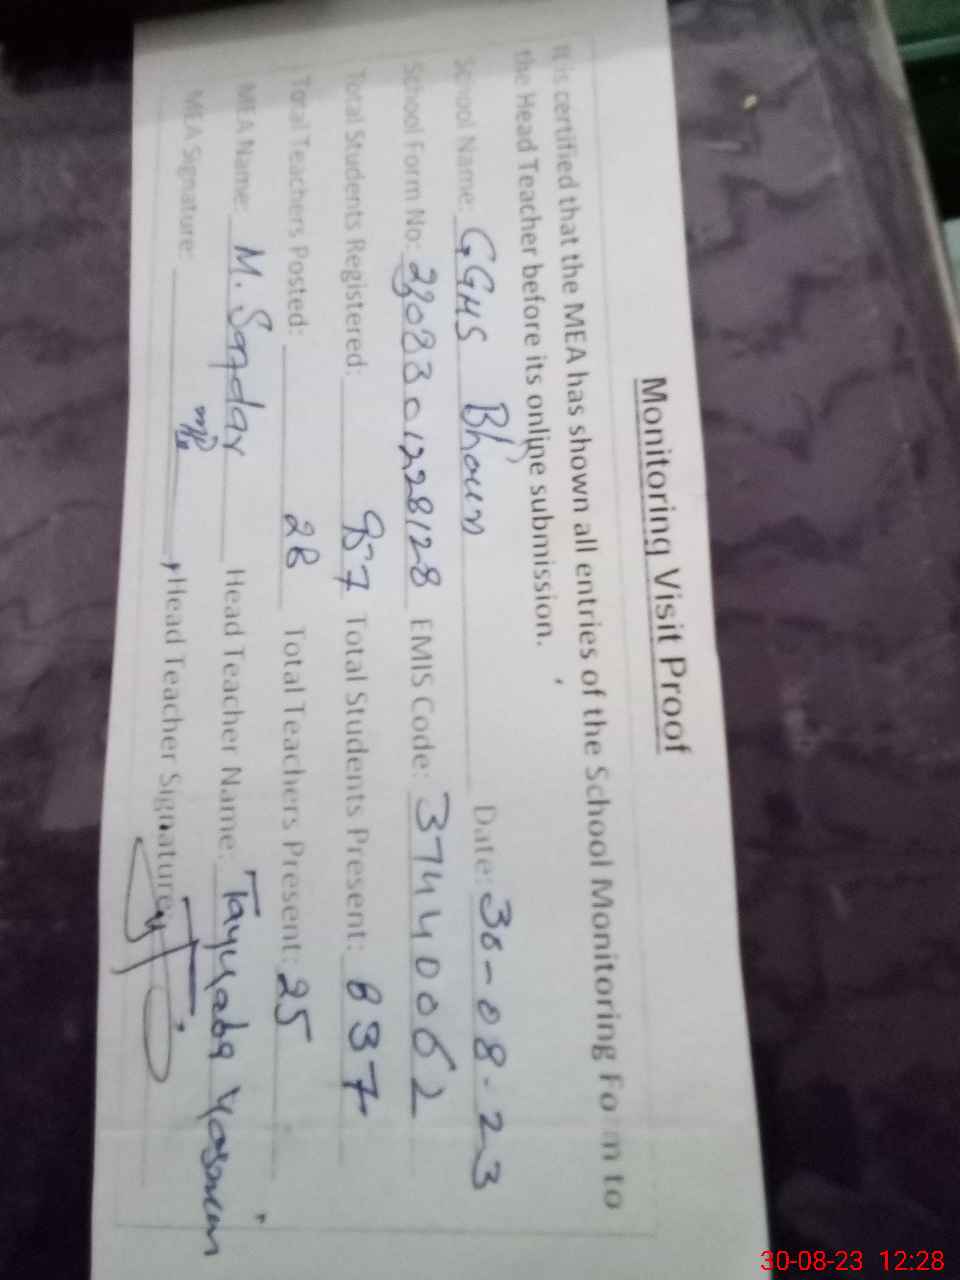 Monitoring Visit Proof
It is certified that the MEA has shown all entries of the School Monitoring Form to
the Head Teacher before its online submission.
School Name: GGHS Bhoun Date: 30-08-23
School Form No: 2308301228128 EMIS Code: 37440062
Total Students Registered: 957 Total Students Present: 837
Total Teachers Posted: 28 Total Teachers Present: 25
MEA Name: M. Safdar Head Teacher Name: Tayyaba Yasmeen
MEA Signature: Head Teacher Signature:
30-08-23 12:28